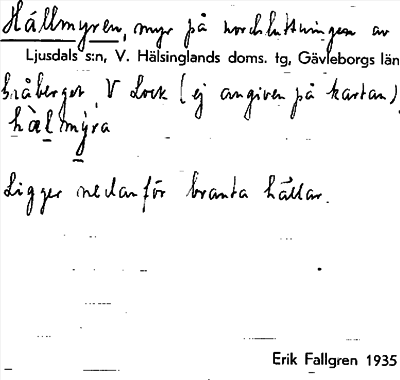 Hällmyren, myr på nordsluttningen av
Ljusdals s:n, V. Hälsinglands doms. tg, Gävleborgs län
Gråberget, V Lock (ej angiven på kartan),
hàlmýra
Ligger nedanför branta hällar.
Erik Fallgren 1935